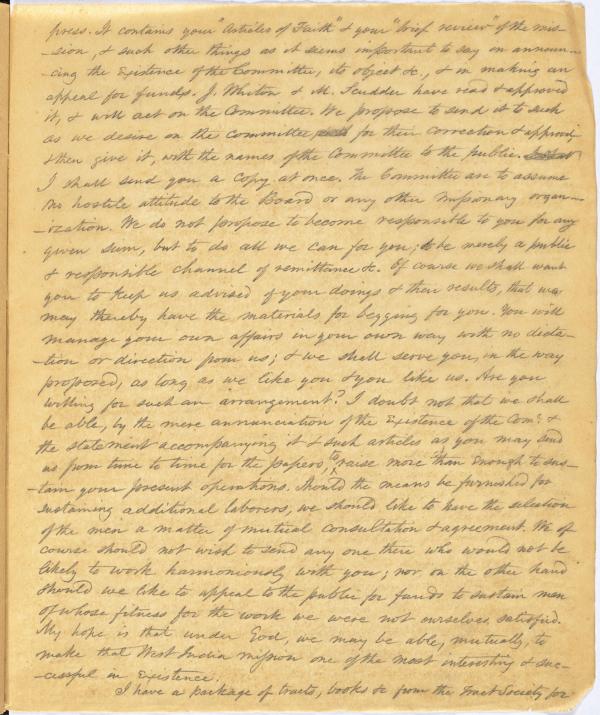 press. It contains your "Articles of Faith" & your "brief review" of the mis-
-sion, & such other things as it seems important to say in announ-
-cing the existence of the Committee, its object &c., & in making an
appeal for funds. J. Whiton & M. Scudder have read & approved
it, & will act on the Committee. We propose to send it to such
as we desire on the Committee for their correction & approval,
& then give it, with the names of the Committee to the public.
I shall send you a copy at once. The Committee are to assume
no hostile attitude to the Board or any other missionary organ-
-ization. We do not propose to become responsible to you for any
given sum, but to do all we can for you; to be merely a public
& responsible channel of remittance &c. Of course we shall want
you to keep us advised of your doings & their results, that we
may thereby have the materials for begging for you. You will
manage your own affairs in your own way with no dicta-
-tion or direction from us; & we shall serve you, in the way
proposed, as long as we like you & you like us. Are you
willing for such an arrangement? I doubt not that we shall
be able, by the mere annunciation of the existence of the Com. &
the statement accompanying it & such articles as you may send
us from time to time for the papers to raise more than enough to sus-
-tain your present operations. Should the means be furnished for
sustaining additional laborers, we should like to have the selection
of the men a matter of mutual consultation & agreement. We of
course should not wish to send any one there who would not be
likely to work harmoniously with you; nor on the other hand
should we like to appeal to the public for funds to sustain men
of whose fitness for the work we were not ourselves satisfied.
My hope is that under God, we may be able, mutually, to
make that West India mission one of the most interesting & suc-
-cessful in existence.
I have a package of tracts, books &c from the Tract Society for